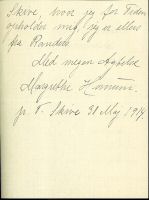 Skive, hvor jeg for Tiden
opholder mig, jeg er ellers
fra Randers.
Med megen Agtelse
Margrethe
p. t. Skive 31 Maj 1914